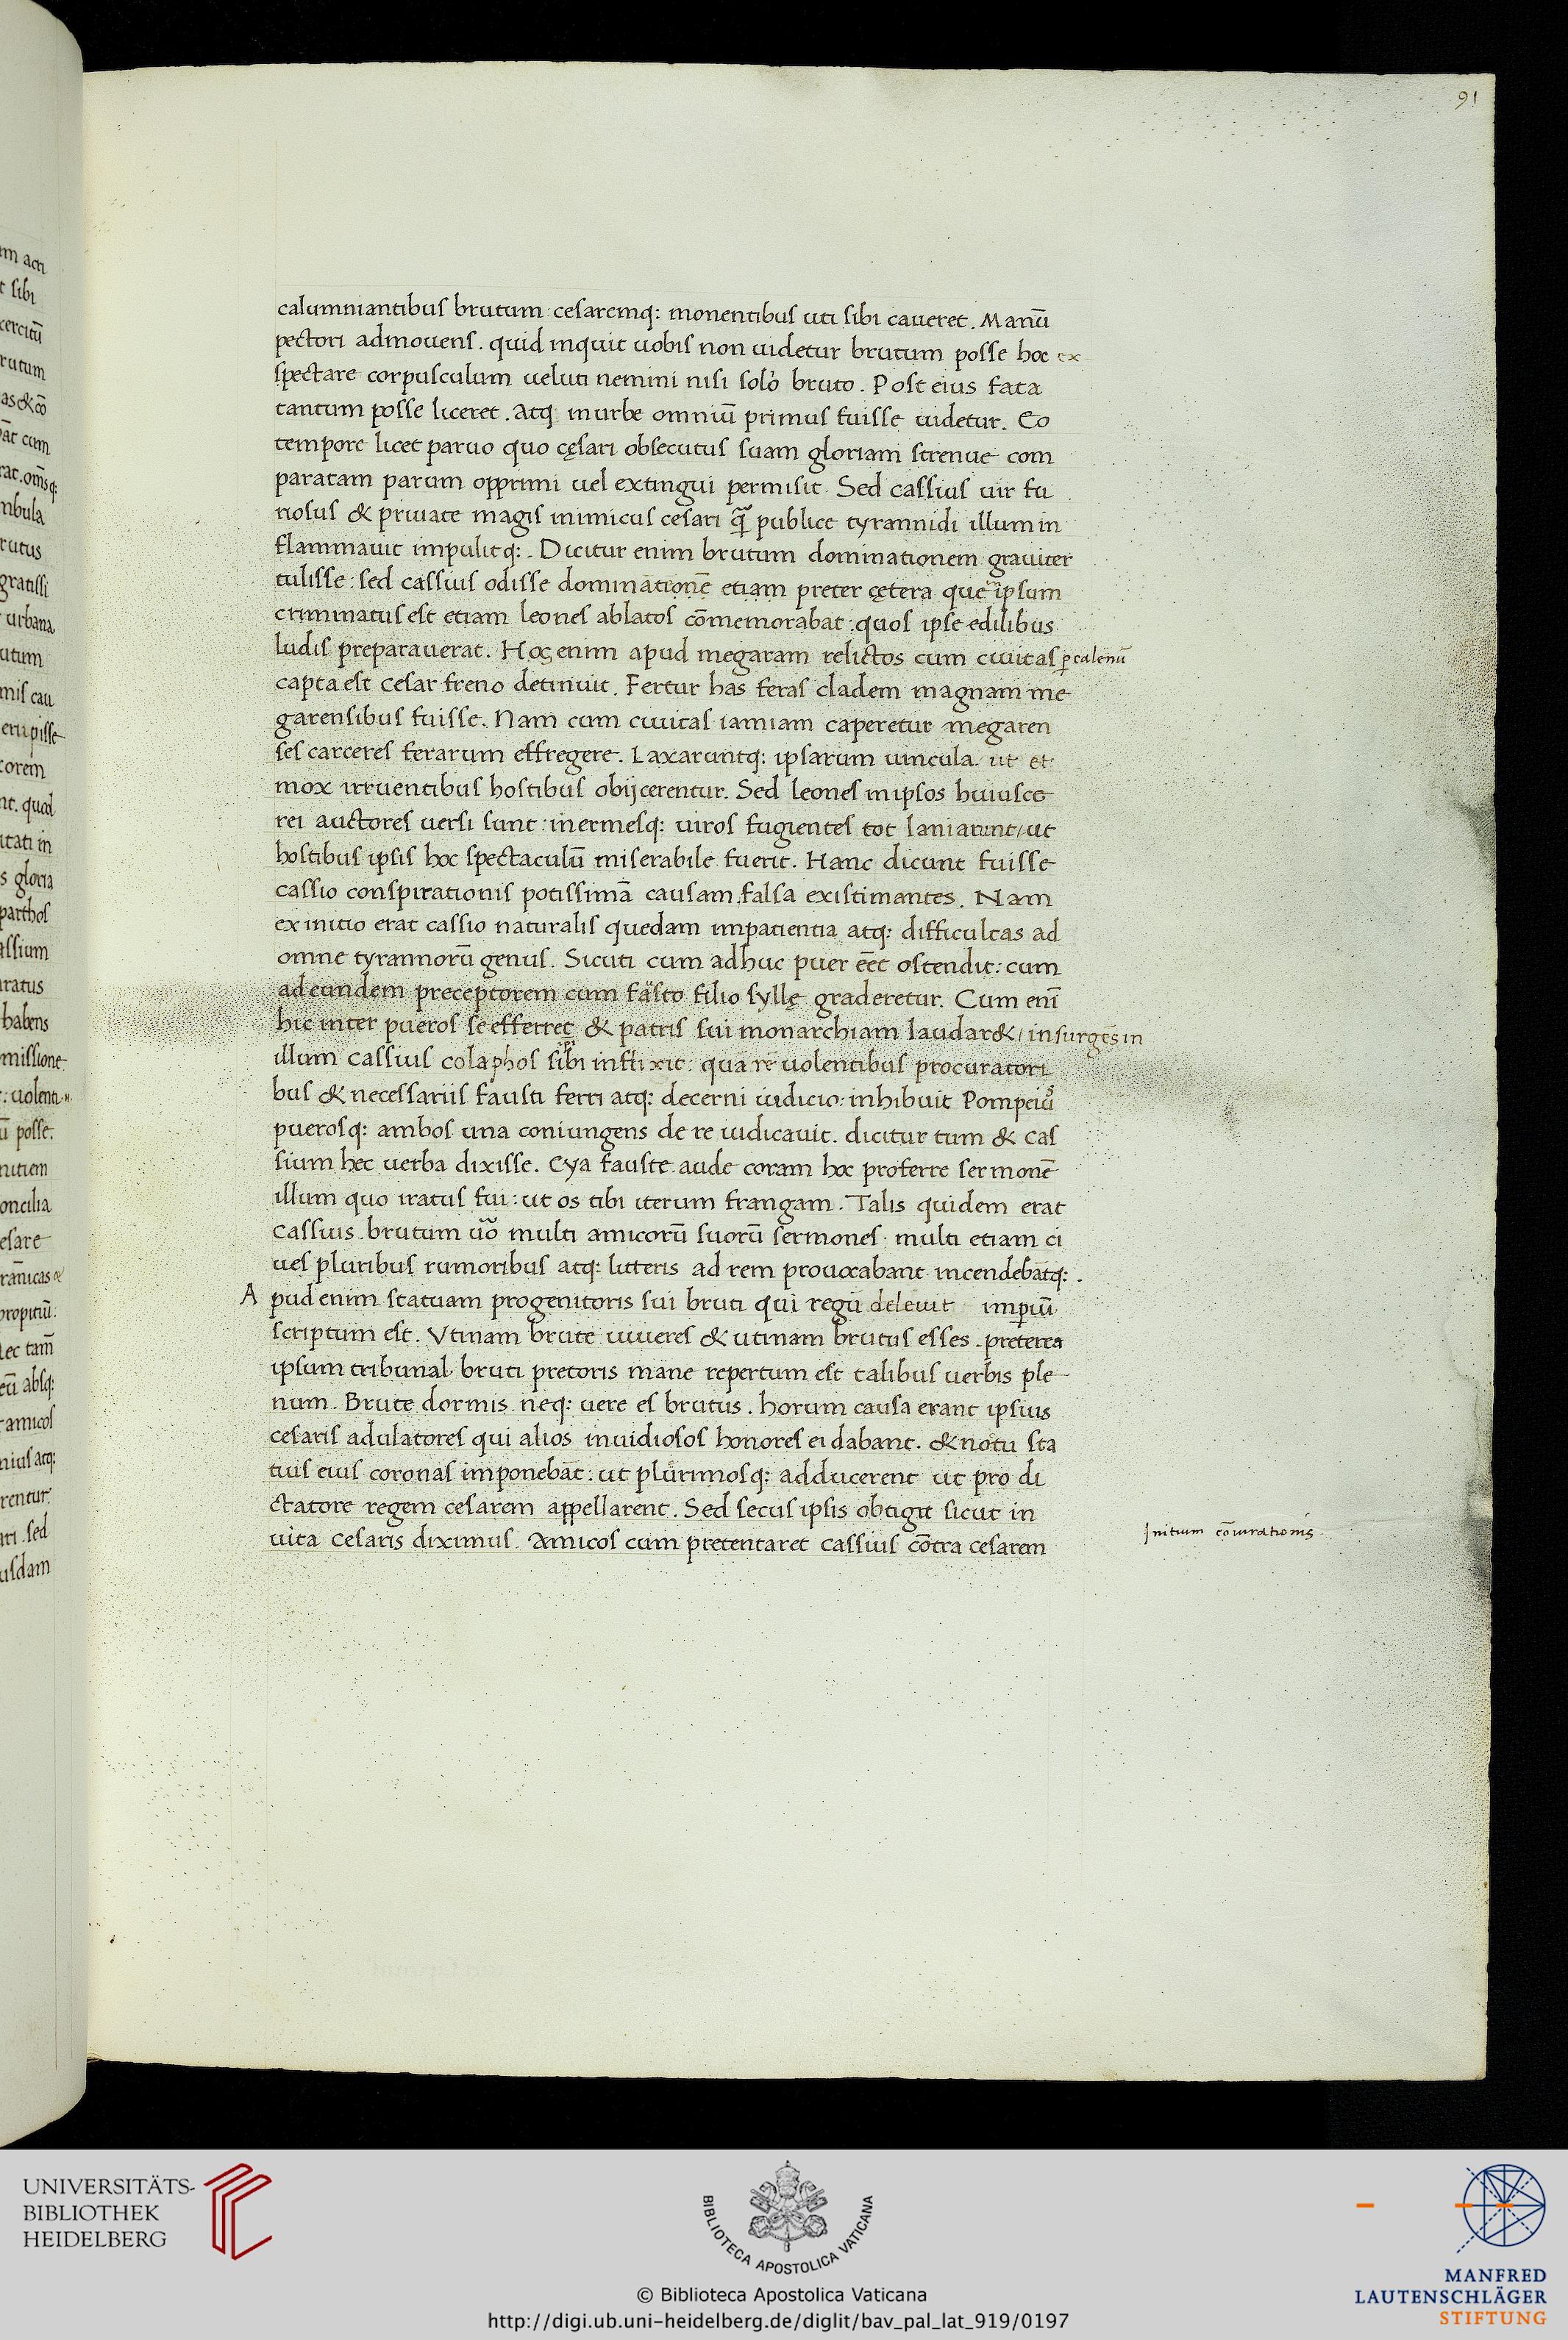 91
calumniantibus brutum cesaremq: monentibus uti sibi caueret. Manū
pectori admouens. quid inquit uobis non uidetur brutum posse hoc ex
spectare corpusculum ueluti nemini nisi solo bruto. Post eius fata
tantum posse liceret. Atq: in urbe omniū primus fuisse uidetur. Eo
tempore licet paruo quo cęsari obsecutus suam gloriam strenue com
paratam parum opprimi uel extingui permisit. Sed cassius uir fu
riosus & priuate magis inimicus cesari q̄ publice tyrannidi illum in
flammauit impulitq:. Dicitur enim brutum dominationem grauiter
tulisse: sed cassius odisse dominationē etiam preter cętera que in ipsum
criminatus est etiam leones ablatos cōmemorabat: quos ipse edilibus
ludis preparauerat. Hos enim apud megaram relictos cum ciuitas p calenū
capta est cesar freno detinuit. Fertur has feras cladem magnam me
garensibus fuisse. Nam cum ciuitas iamiam caperetur megaren
ses carceres ferarum effregere. Laxaruntq: ipsarum uincula ut et
mox irruentibus hostibus obijcerentur. Sed leones in ipsos huiusce
rei auctores uersi sunt: inermesq: uiros fugientes tot laniarunt/ ut
hostibus ipsis hoc spectaculū miserabile fuerit. Hanc dicunt fuisse
cassio conspirationis potissimā causam falsa existimantes. Nam
ex initio erat cassio naturalis quedam impatientia atq: difficultas ad
omne tyrannorū genus. Sicuti cum adhuc puer eēt ostendit: cum
ad eundem preceptorem cum fausto filio syllę graderetur. Cum eni̅
hic inter pueros se efferret & patris sui monarchiam laudar&/ insurgēs in
illum cassius colaphos sibi inflixit: qua re uolentibus procuratori
bus & necessariis fausti ferri atq: decerni iudicio: inhibuit Pompeius
puerosq: ambos una coniungens de re iudicauit. dicitur tum & cas
sium hec uerba dixisse. Eya fauste aude coram hoc proferre sermonē
illum quo iratus fui: ut os tibi iterum frangam. Talis quidem erat
cassius. brutum ūo multi amicorū suorū sermones. multi etiam ci
ues pluribus rumoribus atq: litteris ad rem prouocabant incendebātq:.
A pud enim statuam progenitoris sui bruti qui regū deleuit impiū
scriptum est. Vtinam brute uiueres & utinam brutus esses. preterea
ipsum tribunal bruti pretoris mane repertum est talibus uerbis ple
num. Brute dormis neq: uere es brutus. horum causa erant ipsius
cesaris adulatores qui alios inuidiosos honores ei dabant. & noctu sta
tuis eius coronas imponebāt: ut plurimosq: adducerent ut pro di
ctatore regem cesarem appellarent. Sed secus ipsis obtigit sicut in
uita cesaris diximus. Amicos cum pretentaret cassius cōtra cesarem
Initium cōiurationis
UNIVERSITÄTS-
BIBLIOTHEK
HEIDELBERG
BIBLIOTECA APOSTOLICA VATICANA
© Biblioteca Apostolica Vaticana
http://digi.ub.uni-heidelberg.de/diglit/bav_pal_lat_919/0197
MANFRED
LAUTENSCHLÄGER
STIFTUNG